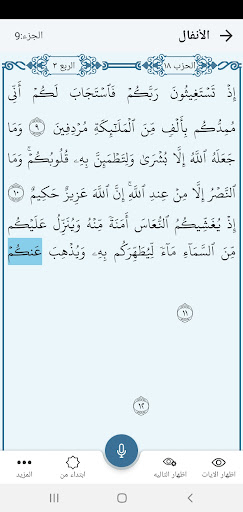 الأنفال
الجزء:9
الحزب ١٨
الربع ٢
إِذْ تَسْتَغِيثُونَ رَبَّكُمْ فَٱسْتَجَابَ لَكُمْ أَنِّى
مُمِدُّكُم بِأَلْفٍ مِّنَ ٱلْمَلَـٰٓئِكَةِ مُرْدِفِينَ ٩ وَمَا
جَعَلَهُ ٱللَّهُ إِلَّا بُشْرَىٰ وَلِتَطْمَئِنَّ بِهِۦ قُلُوبُكُمْ ۚ وَمَا
ٱلنَّصْرُ إِلَّا مِنْ عِندِ ٱللَّهِ ۚ إِنَّ ٱللَّهَ عَزِيزٌ حَكِيمٌ ١٠
إِذْ يُغَشِّيكُمُ ٱلنُّعَاسَ أَمَنَةً مِّنْهُ وَيُنَزِّلُ عَلَيْكُم
مِّنَ ٱلسَّمَآءِ مَآءً لِّيُطَهِّرَكُم بِهِۦ وَيُذْهِبَ عَنكُمْ
١١
١٢
اظهار الايات
اظهار التاليه
ابتداء من
المزيد